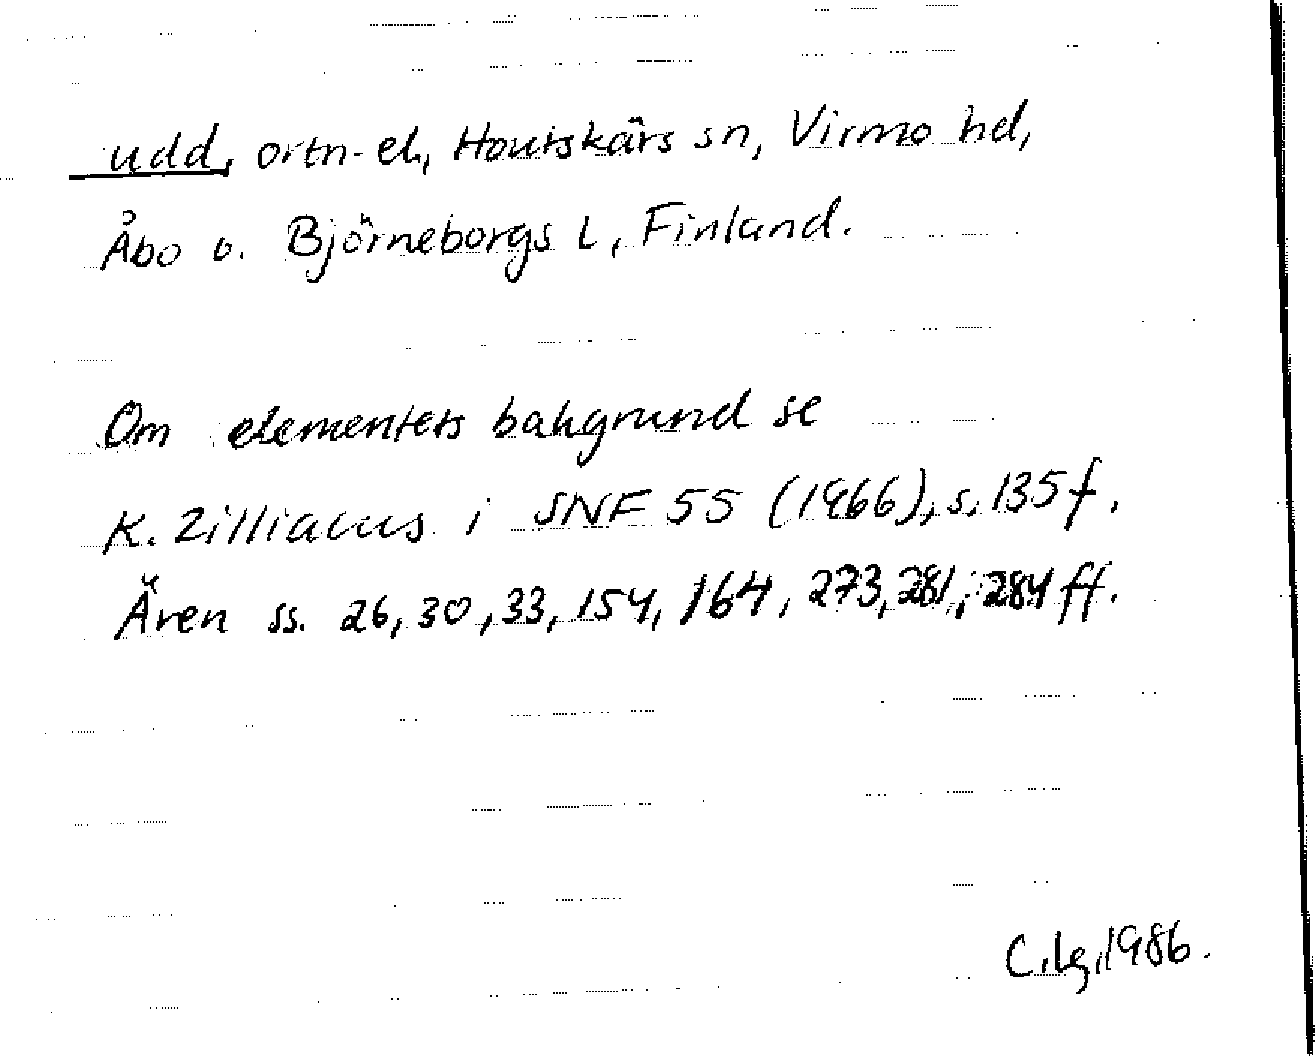 udd, ortn-el., Houtskärs sn, Virmo hd,
Åbo o. Björneborgs L, Finland.
Om elementets bakgrund se
K. Zilliacus i SNF 55 (1966), s. 135 f.
Även ss. 26, 30, 33, 154, 164, 273, 281, 284 ff.
C. Lg. 1986.